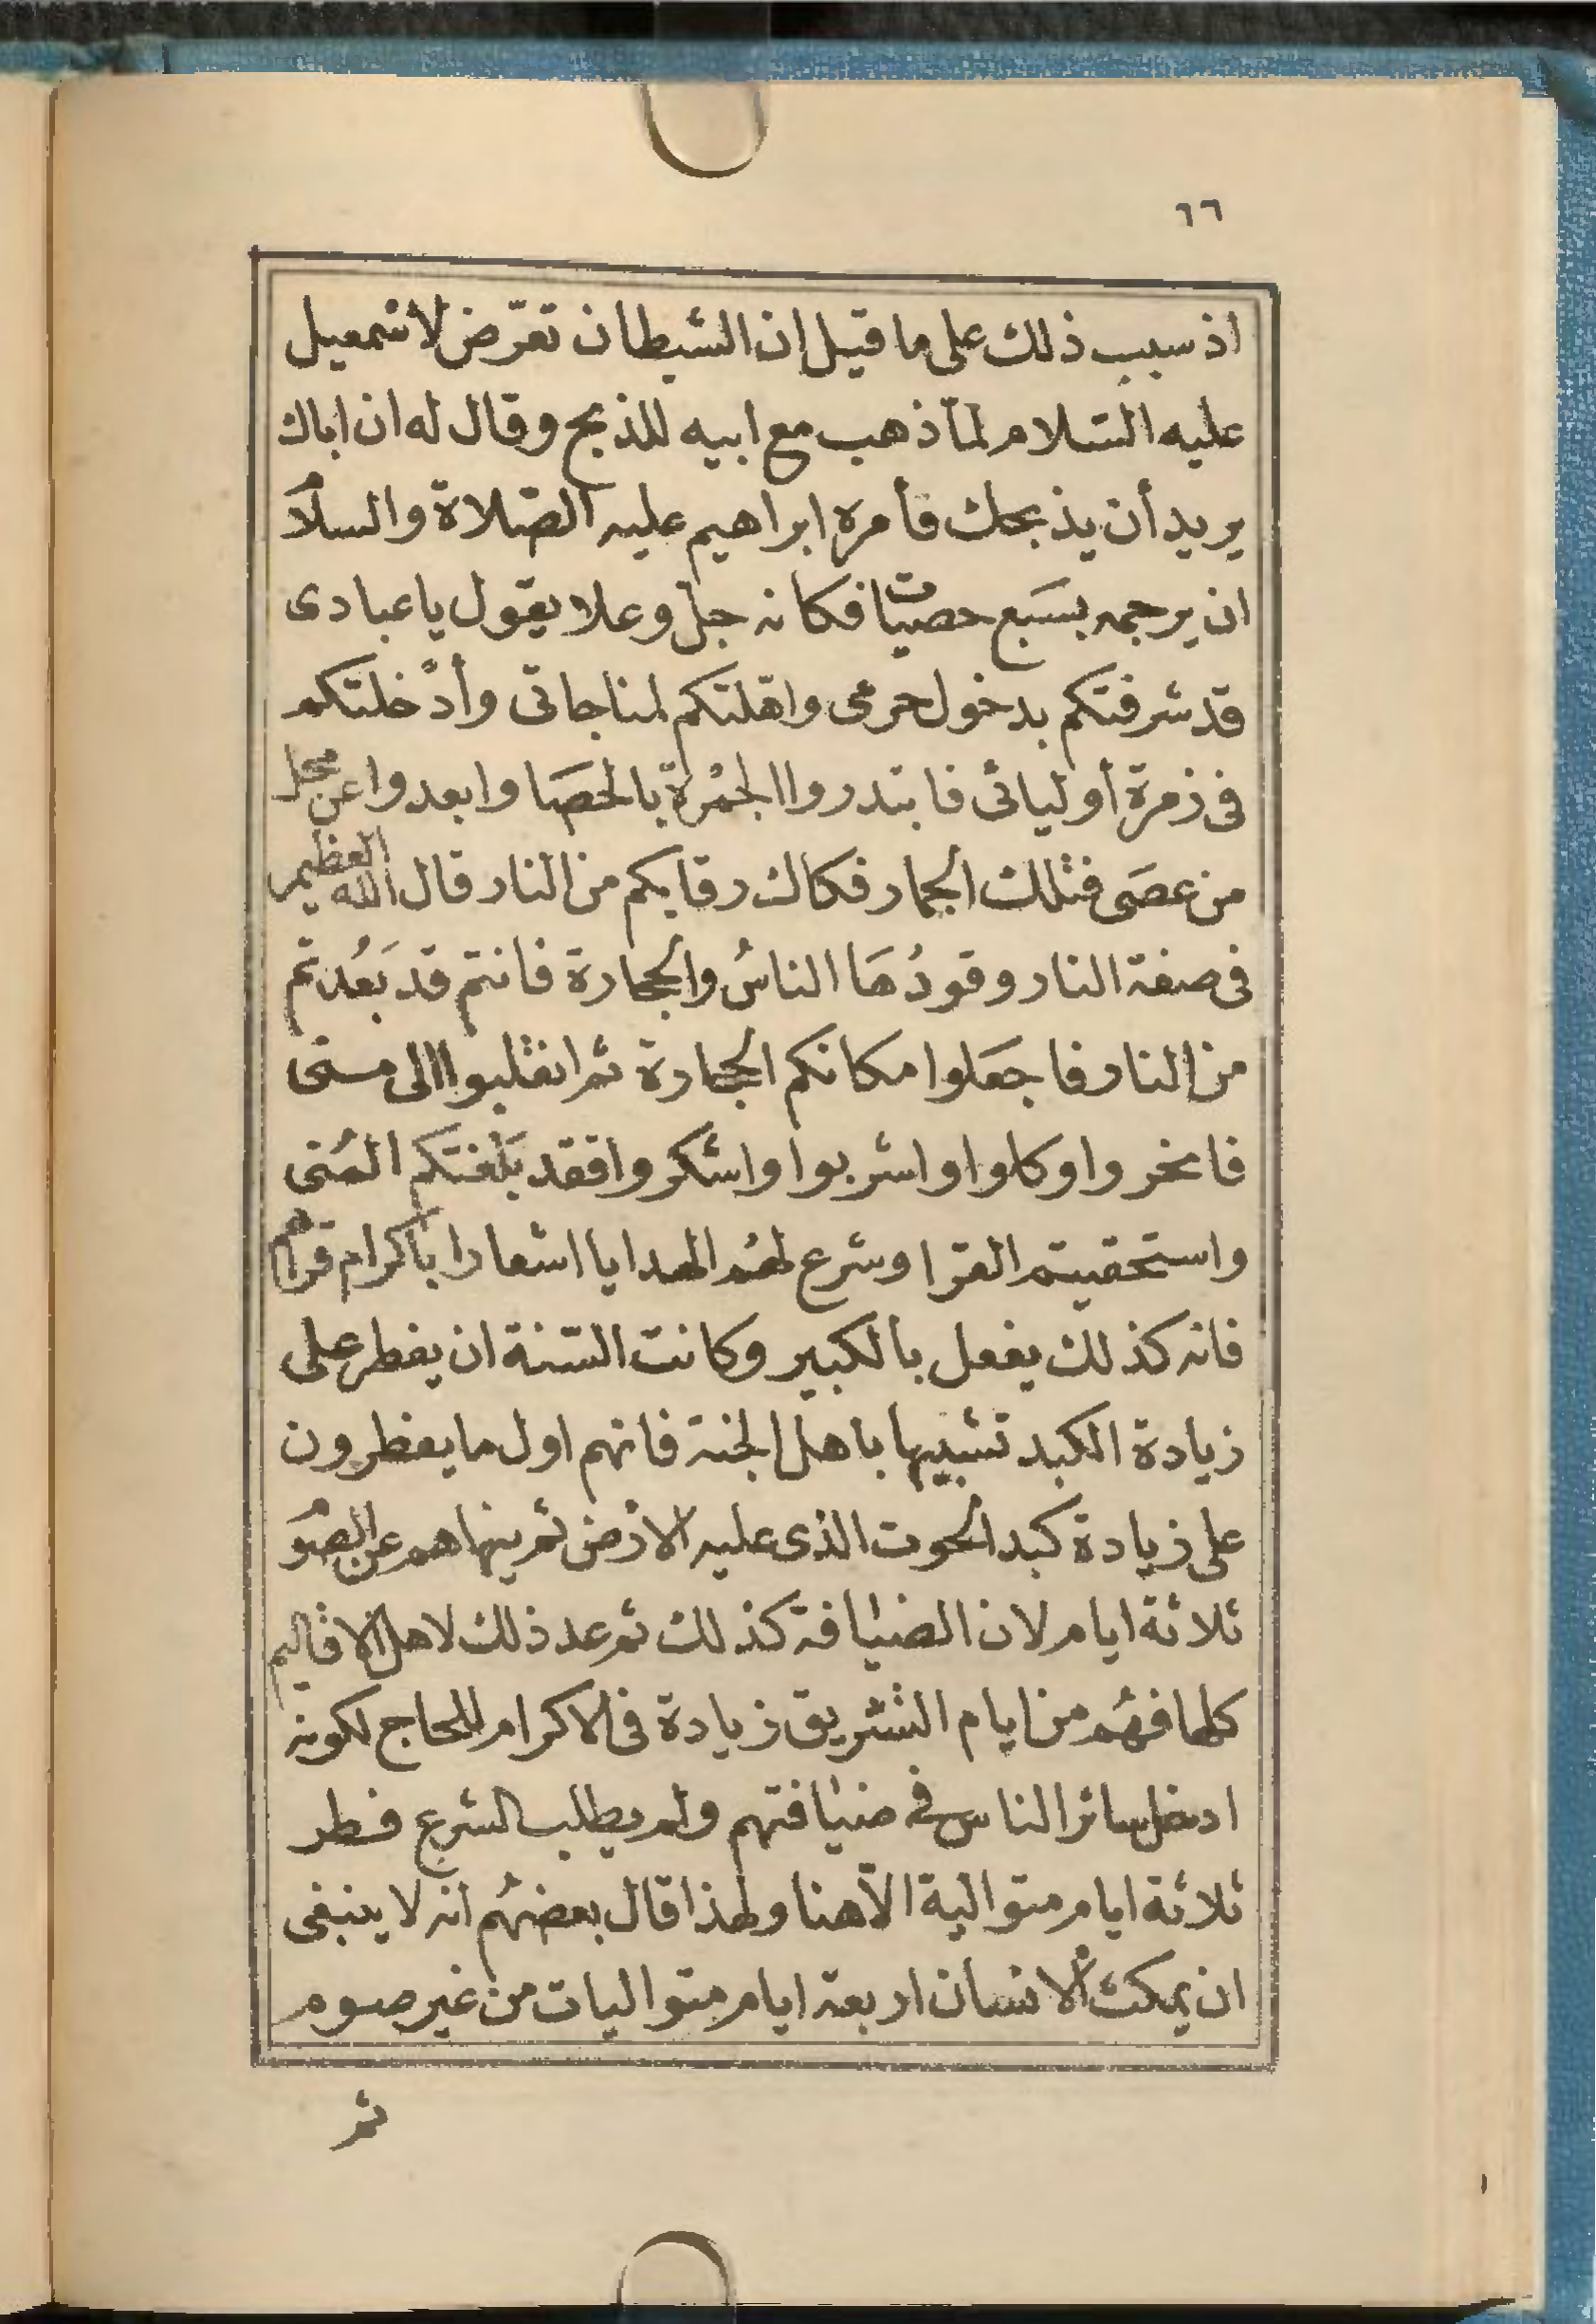 ٦٦
اذ سبب ذلك على ما قيل ان الشيطان تعرّض لاسمعيل
عليه السّلام لمّا ذهب مع ابيه للذبح وقال له ان اباك
يريد أن يذبحك فأمره ابراهيم عليه الصّلاة والسلاَم
ان يرجمه بسَبع حصيات فكانه جلّ وعلا يقول يا عبادى
قد شرفتكم بدخول حرمى واهّلتكم لمناجاتى وأدْخلتكم
فى زمرة أوليائى فابتدروا الجمْرة بالحصَا وابعدوا عن محل
من عصَى فتلك الجمار فكاك رقابكم من النار قال الله العظيم
فى صفة النار وقودُهَا الناسُ والحجارة فانتم قد بَعُدتم
من النار فاجعَلوا مكانكم الحجارة ثم انقلبوا الى منى
فانحروا وكلوا واشربوا واشكروا فقد بَلغتكم المُنى
واستحقيتم القرا وشرع لهُم الهدايا اشعارا باكرام قراهم
فانه كذلك يفعل بالكبير وكانت السّنة ان يفطر على
زيادة الكبد تشبيها باهل الجنة فانهم اول ما يفطرون
على زيادة كبد الحوت الذى عليه الارْض ثم ينهاهم عن الصَوم
ثلاثة ايام لان الضيافة كذلك ثم عد ذلك لاهل الاقاليم
كلها فهُم من ايام التشريق زيادة فى الاكرام للحاج لكونه
ادخل سائر الناس فى ضيافتهم ولم يطلب الشرع فطر
ثلاثة ايام متوالية الاّ هنا ولهذا قال بعضهُم انه لا ينبغى
ان يمكث الانسان اربعة ايام متواليات من غير صوم
ثم